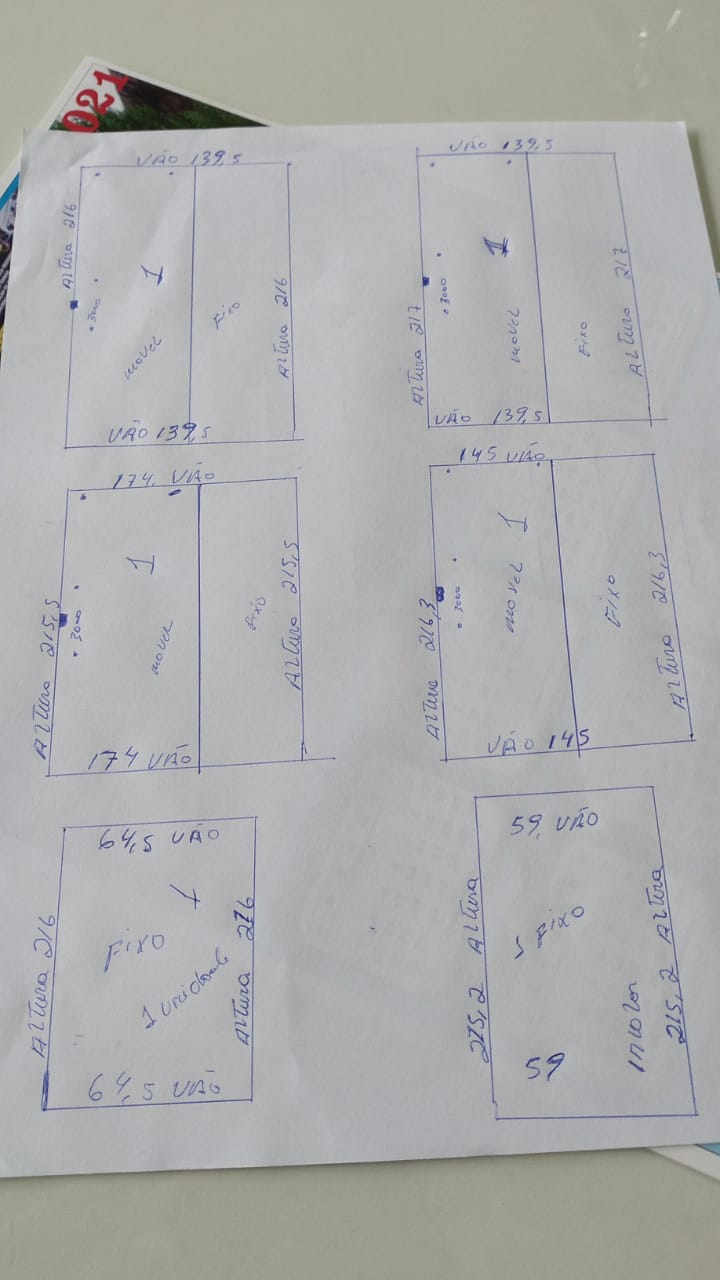 021
VÃO 139,5
Altura 216
1
3000
movel
Fixo
Altura 216
VÃO 139,5
VÃO 139,5
Altura 217
1
3000
movel
Fixo
Altura 217
VÃO 139,5
174, VÃO
Altura 215,5
1
3000
movel
Fixo
Altura 215,5
174 VÃO
145 VÃO
Altura 216,3
1
3000
movel
Fixo
Altura 216,3
VÃO 145
64,5 VÃO
Altura 216
1
Fixo
1 unidade
Altura 216
64,5 VÃO
59, VÃO
215,2 Altura
1 Fixo
Incolor
215,2 Altura
59